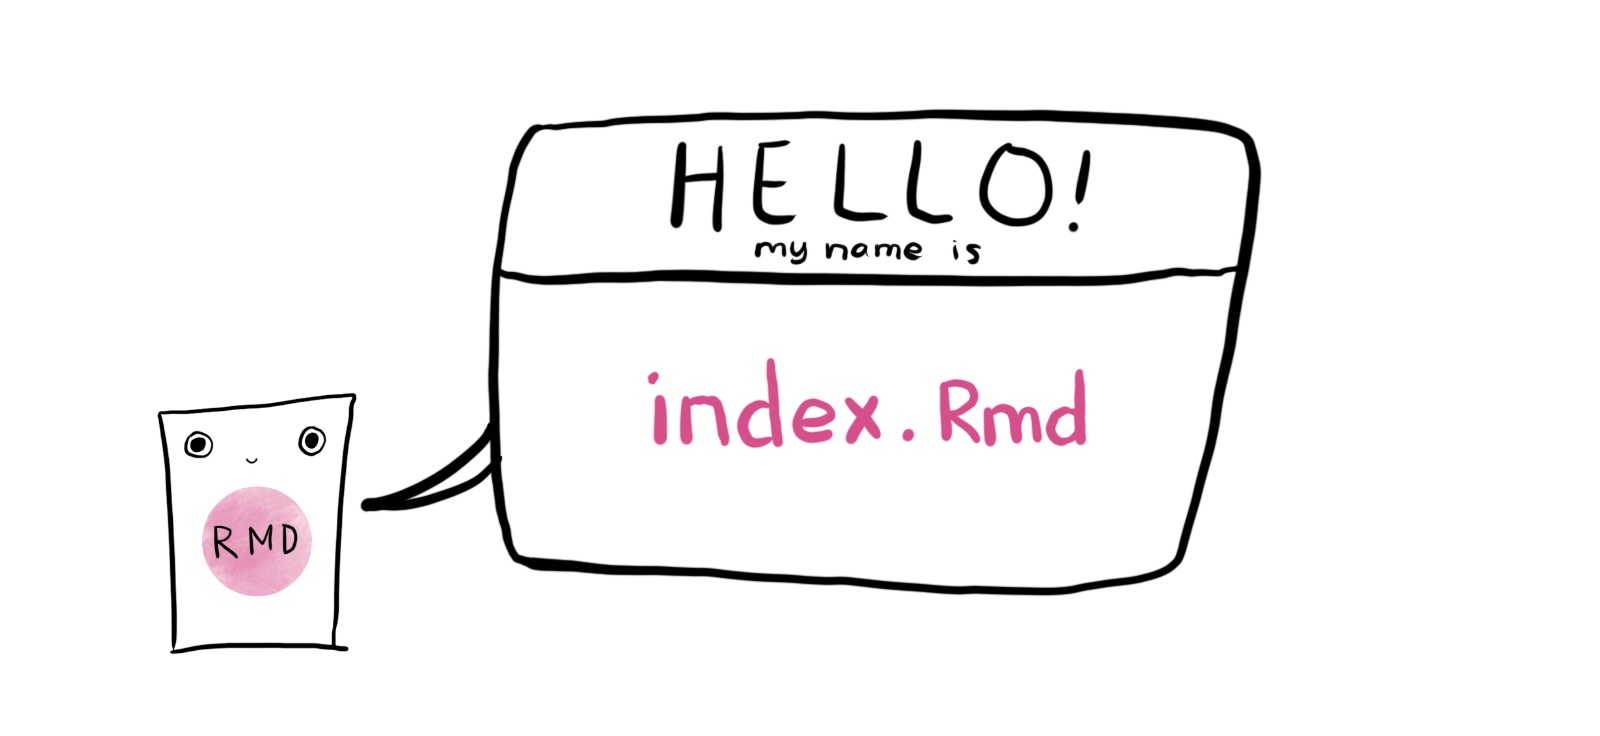 HELLO!
my name is
index.Rmd
RMD